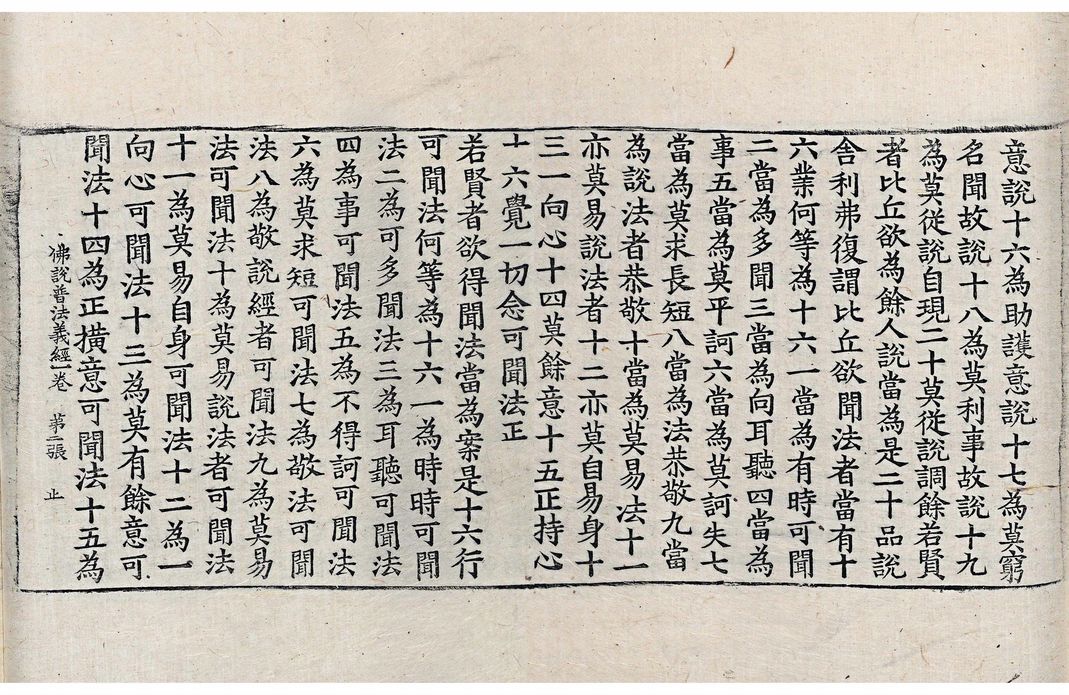 意說十六為助護意說十七為莫窮
名聞故說十八為莫利事故說十九
為莫從說自現二十莫從說調餘若賢
者比丘欲為餘人說當為是二十品說
舍利弗復謂比丘欲聞法者當有十
六業何等為十六一當為有時可聞
二當為多聞三當為向耳聽四當為
事五當為莫平訶六當為莫訶失七
當為莫求長短八當為法恭敬九當
為說法者恭敬十當為莫易法十一
亦莫易說法者十二亦莫自易身十
三一向心十四莫餘意十五正持心
十六覺一切念可聞法正
若賢者欲得聞法當為案是十六行
可聞法何等為十六一為時時可聞
法二為可多聞法三為耳聽可聞法
四為事可聞法五為不得訶可聞法
六為莫求短可聞法七為敬法可聞
法八為敬說經者可聞法九為莫易
法可聞法十為莫易說法者可聞法
十一為莫易自身可聞法十二為一
向心可聞法十三為莫有餘意可
聞法十四為正擴意可聞法十五為
佛說普法義經一卷 第二張 止